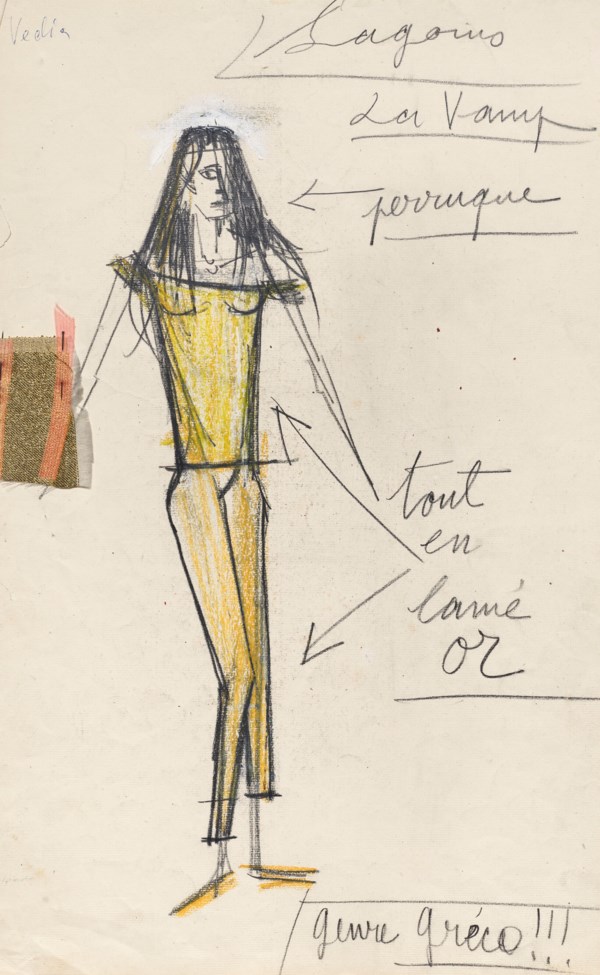 La Vamp
perruque
tout
en
lamé
or
genre gréco!!!